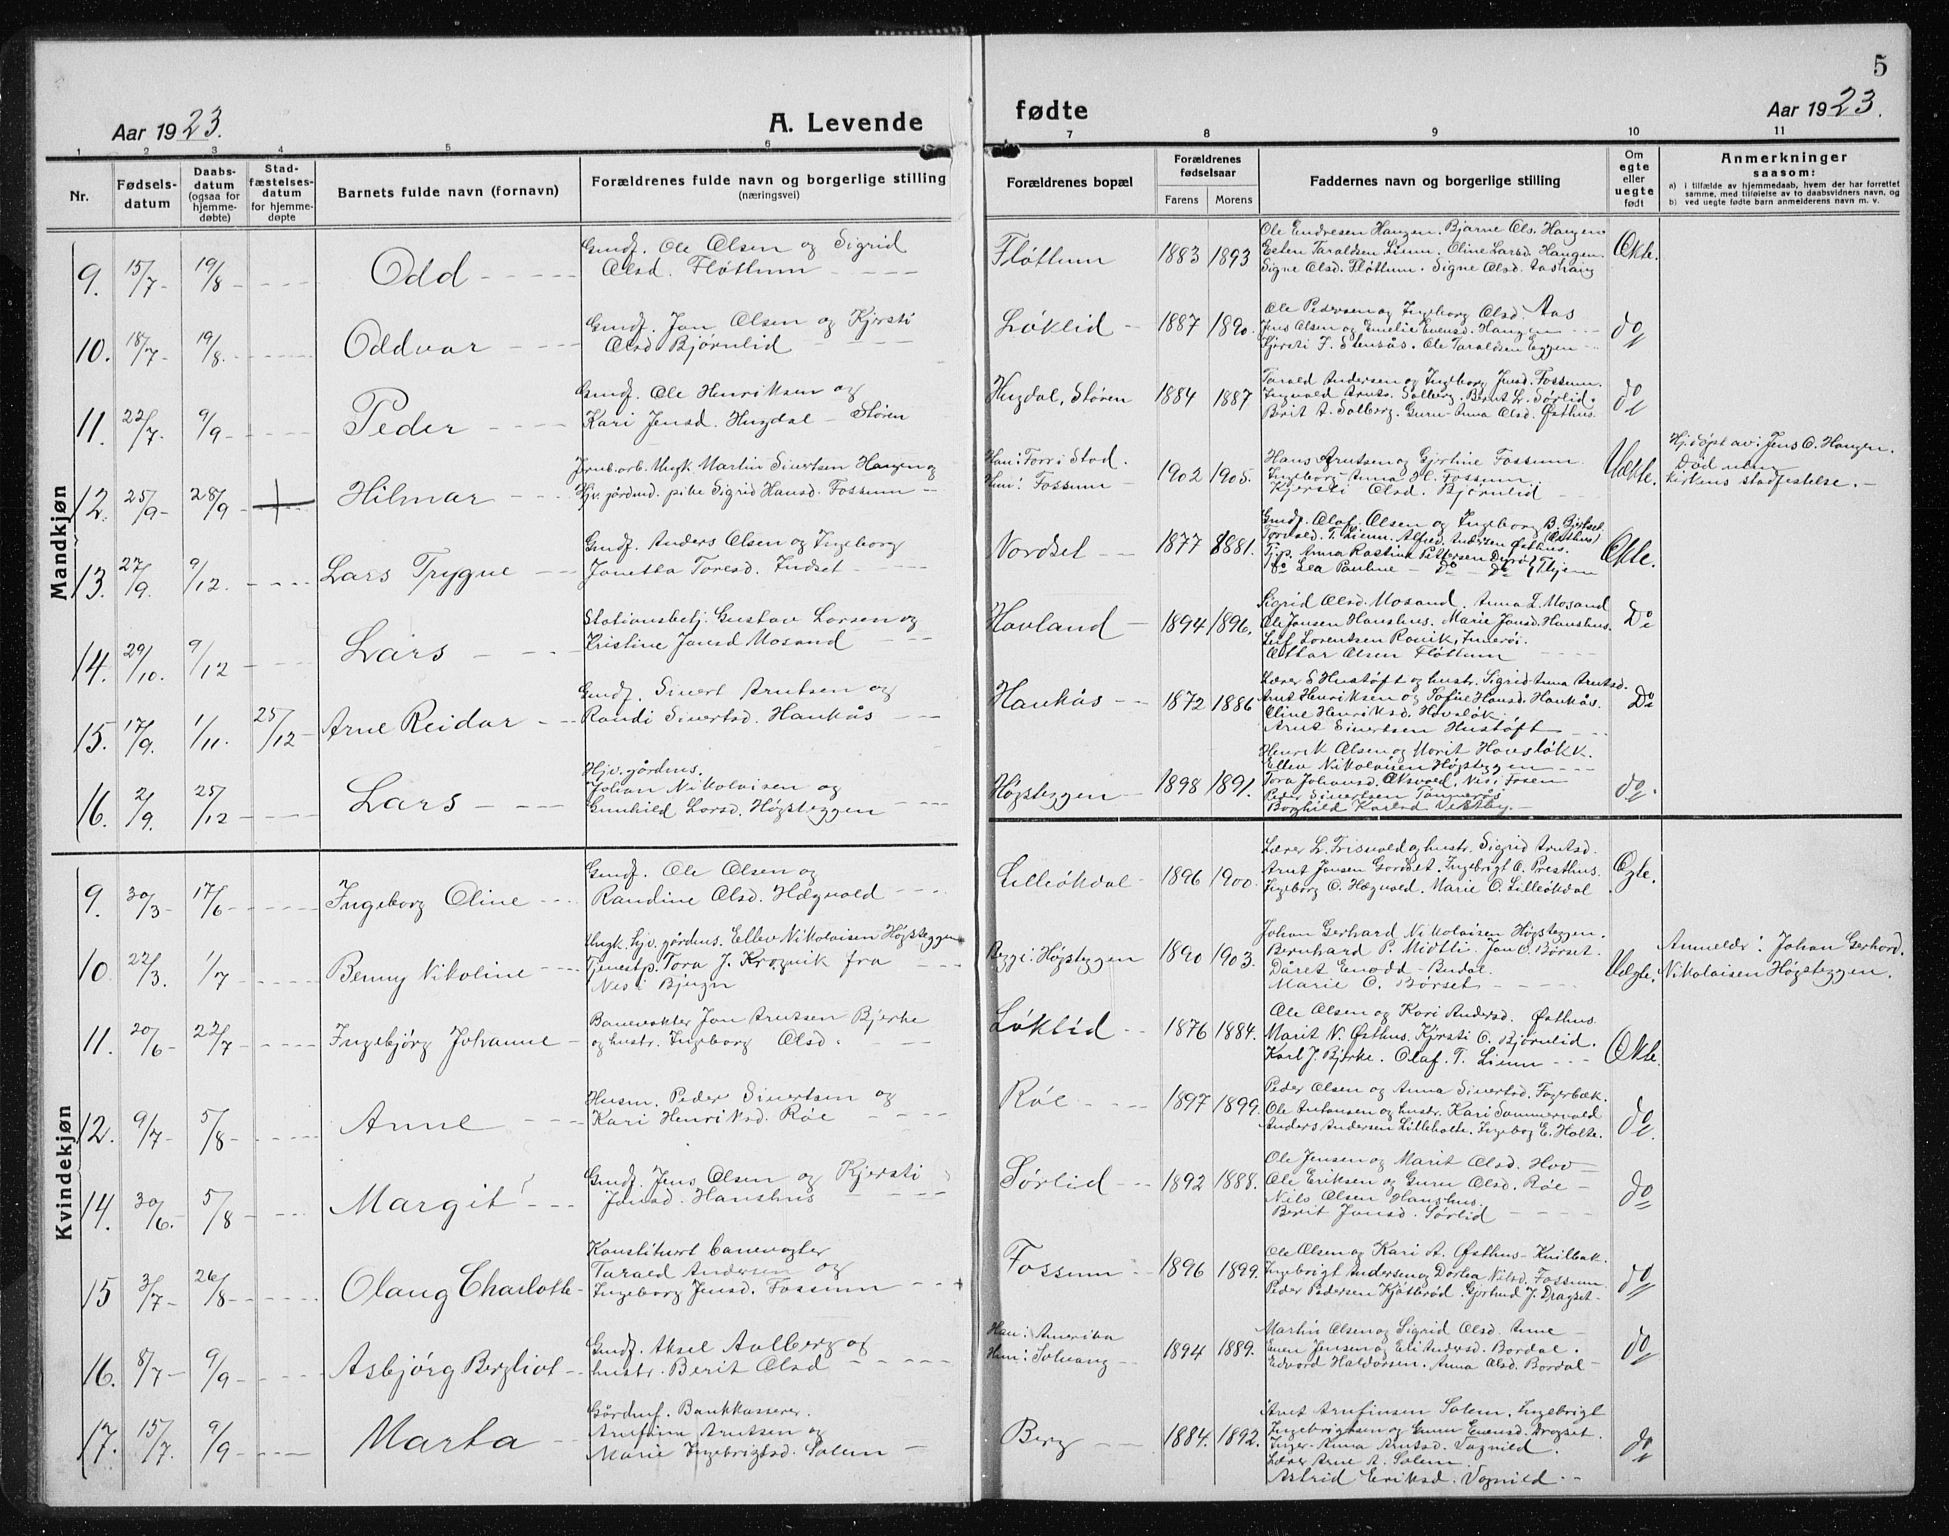 5
Aar 1923. A. Levende
fødte Aar 1923.
1 2 3 4 5 6
7 8 9 10 11
Nr.
Fødsels-
datum
Daabs-
datum
(ogsaa for
hjemme-
døbte)
Stad-
fæstelses-
datum
for hjemme-
døpte
Barnets fulde navn (fornavn)
Forældrenes fulde navn og borgerlige stilling
(næringsvei)
Forældrenes bopæl
Forældrenes
fødselsaar
Farens Morens
Faddernes navn og borgerlige stilling
Om
egte
eller
uegte
født
Anmerkninger
saasom:
a) i tilfælde av hjemmedaab, hvem der har forrettet
samme, med tilføielse av to daabsvidners navn, og
b) ved uegte fødte barn anmelderens navn m. v.
Mandkjøn
9. 15/7 - 19/8 - Odd
Gmdf. Ole Olsen og Sigrid
Olsd. Fløttum
Fløttum 1883 1893
Ole Endresen Haugen. Bjarne Ols. Haugen
Esten Taraldsen Linn. Eline Larsd. Haugen
Signe Olsd. Fløttum. Signe Olsd.
Ekte.
10. 18/7 - 19/8. Oddvar
Gmdf. Jon Olsen og Kjersti
Olsd Bjørnlid
Løklid 1887 1890.
Ole Pedersen og Ingeborg Olsd. Aas
Jens Olsen og Emelie Evensd. Haugen
Kjersti J. Stensås. Ole Taraldsen Eggen
do
11. 22/7. 9/9 - Peder
Gmdf. Ole Henriksen og
Kari Jensd. Hugdal - Støren
Hugdal, Støren 1884 1887
Tarald Andersen og Ingeborg Jensd. Fossum.
Ingvald Arnts. Solberg. Bernt L. Sørlid.
Berit A. Solberg. Guru-Anna Olsd. Østhus.
do
12. 25/9 - 28/9 - Hilmar
Jernb.arb. Ungk. Martin Sivertsen Haugen og
Hjv. gårdmd. pike Sigrid Hansd. Fossum
Han: Torr: Stod.
Hun: Fossum 1902 1905.
Hans Arntsen og Gjertine Fossum
Ingeborg Anna H. Fossum
Kjersti Olsd. Bjørnlid
Uekte.
Hj.døpt av: Jens O. Haugen.
Død uten
kirkens stadfestelse. -
13. 27/9. 9/12. Lars Trygve
Gmdf. Anders Olsen og Ingeborg
Jonetta Toresd. Indset
Nordset 1877 1881.
Gmdf. Olaf Olsen og Ingeborg B.
Torvald T. Linn. Alfred Andersen Østhus.
Tjp. Anna Pettersen
do Lea Pauline - do - do
Ekte.
14. 29/10. 9/12 Lars
Stationsbetj. Gustav Larsen og
Kristine Jonsd Mosand
Hovland 1894 1896.
Sigrid Olsd. Mosand. Anna L. Mosand
Ole Jonsen Haushus. Marie Jonsd. Haushus.
Leif Lorentsen Rovik, Inderøi.
Ottar Olsen Fløttum
Do
15. 17/9. 1/11. 25/12 Arne Reidar
Gmdf. Sivert Arntsen og
Randi Sivertsd. Haukås
Haukås 1872 1886
Lærer S Hustøft og hustr. Sigrid-Anna Arntsd.
Arnt Henriksen og Sofie Hansd. Haukås.
Eline Henriksd. Hovsløk
Arnt Sivertsen Hustøft
Do
16. 2/9. 25/12 Lars
Hjv. gårdms.
Johan Nikolaisen og
Gunhild Larsd. Høgsteggen
Høgsteggen 1898 1891.
Henrik Olsen og Marit Hovsløkk.
Ellev Nikolaisen Høgsteggen
Tora Johansd. Oksvold, Nes i Fosen
Peder Sivertsen Tømmerås
Borghild Karlsd Vestby.
do.
Kvindekjøn
9. 30/3 - 17/6 - Ingeborg Oline
Gmdf. Ole Olsen og
Randine Olsd. Hægvold
Lilleøkdal 1896 1900.
Lærer L. Trisvold og hustr. Sigrid Arntsd.
Arnt Jonsen Gordset. Ingebrigt O. Presthus.
Ingeborg O. Hægvold. Marie O. Lilleøkdal
Egte.
10 22/3. 1/7 Benny Nikoline
Ungk. hjv. gårdms. Ellev Nikolaisen Høgsteggen
Tjenestp. Tora J. Krogvik fra
Nes i Bjugn
Begge: Høgsteggen 1890 1903.
Johan Gerhard Nikolaisen Høgsteggen.
Bernhard P. Midtli Jon O. Børset.
Dåret Enodd - Budal.
Marie O. Børset
Uegte.
Anmelder: Johan Gerhard.
Nikolaisen Høgsteggen.
11. 20/6 - 22/7 Ingebjørg Johanne
Banevokter Jon Arntsen Bjerke
og hustr. Ingeborg Olsd.
Løklid 1876 1884.
Ole Olsen og Kari Andersd. Østhus.
Marit N. Østhus. Kjersti O. Bjørnlid.
Karl J. Bjerke. Olaf. T. Linn
Ekte.
12. 9/7 - 5/8 - Anne
Husm. Peder Sivertsen og
Kari Henriksd. Røe
Røe 1897 1899.
Peder Olsen og Anna Sivertsd. Fagerbæk.
Ole Antonsen og hustr. Kari Sommervold
Anders Andersen Lilleholte. Ingebog E. Holte.
do.
14. 30/6. - 5/8 - Margit
Gmdf. Jens Olsen og Kjersti
Jonsd. Haushus
Sørlid 1892 1888.
Ole Jensen og Marit Olsd. Hov
Ole Eriksen og Guru Olsd. Røe -
Nils Olsen Haushus.
Berit Jonsd. Sørlid
do
15 3/7 - 26/8 - Olaug Charlotte
Konstituert banevogter
Tarald Andersen og
Ingeborg Jensd. Fossum
Fossum 1896 1899.
Ole Olsen og Kari A. Østhus - Kvilbak.
Ingebrigt Andersen og Dortea Nilsd. Fossum
Peder Pedersen Kjøtterød. Gjertrud J. Dragset -
do
16. 8/7 - 9/9 - Asbjørg Bergliot
Gmdf. Aksel Aalberg og
hustr. Berit Olsd
Han: Amerika
Hun: Solvang 1894 1889.
Martin Olsen og Sigrid Olsd. Anne
Even Jensen og Eli Andersd. Bordal.
Edvard Haldorsen. Anna Olsd. Bordal
do
17. 15/7 9/9 - Marta
Gårdmf. Bankkasserer.
Arnfinn Arntsen og
Marie Ingebrigtsd. Solem
Berg 1884. 1892.
Arnt Arnfinsen Solem. Ingebrigt
Ingebrigtsen og Guru Evensd. Dragset.
Inger-Anna Arntsd. Vagnild.
Lærer Arne A. Solem.
Astrid Eriksd. Vognild
do